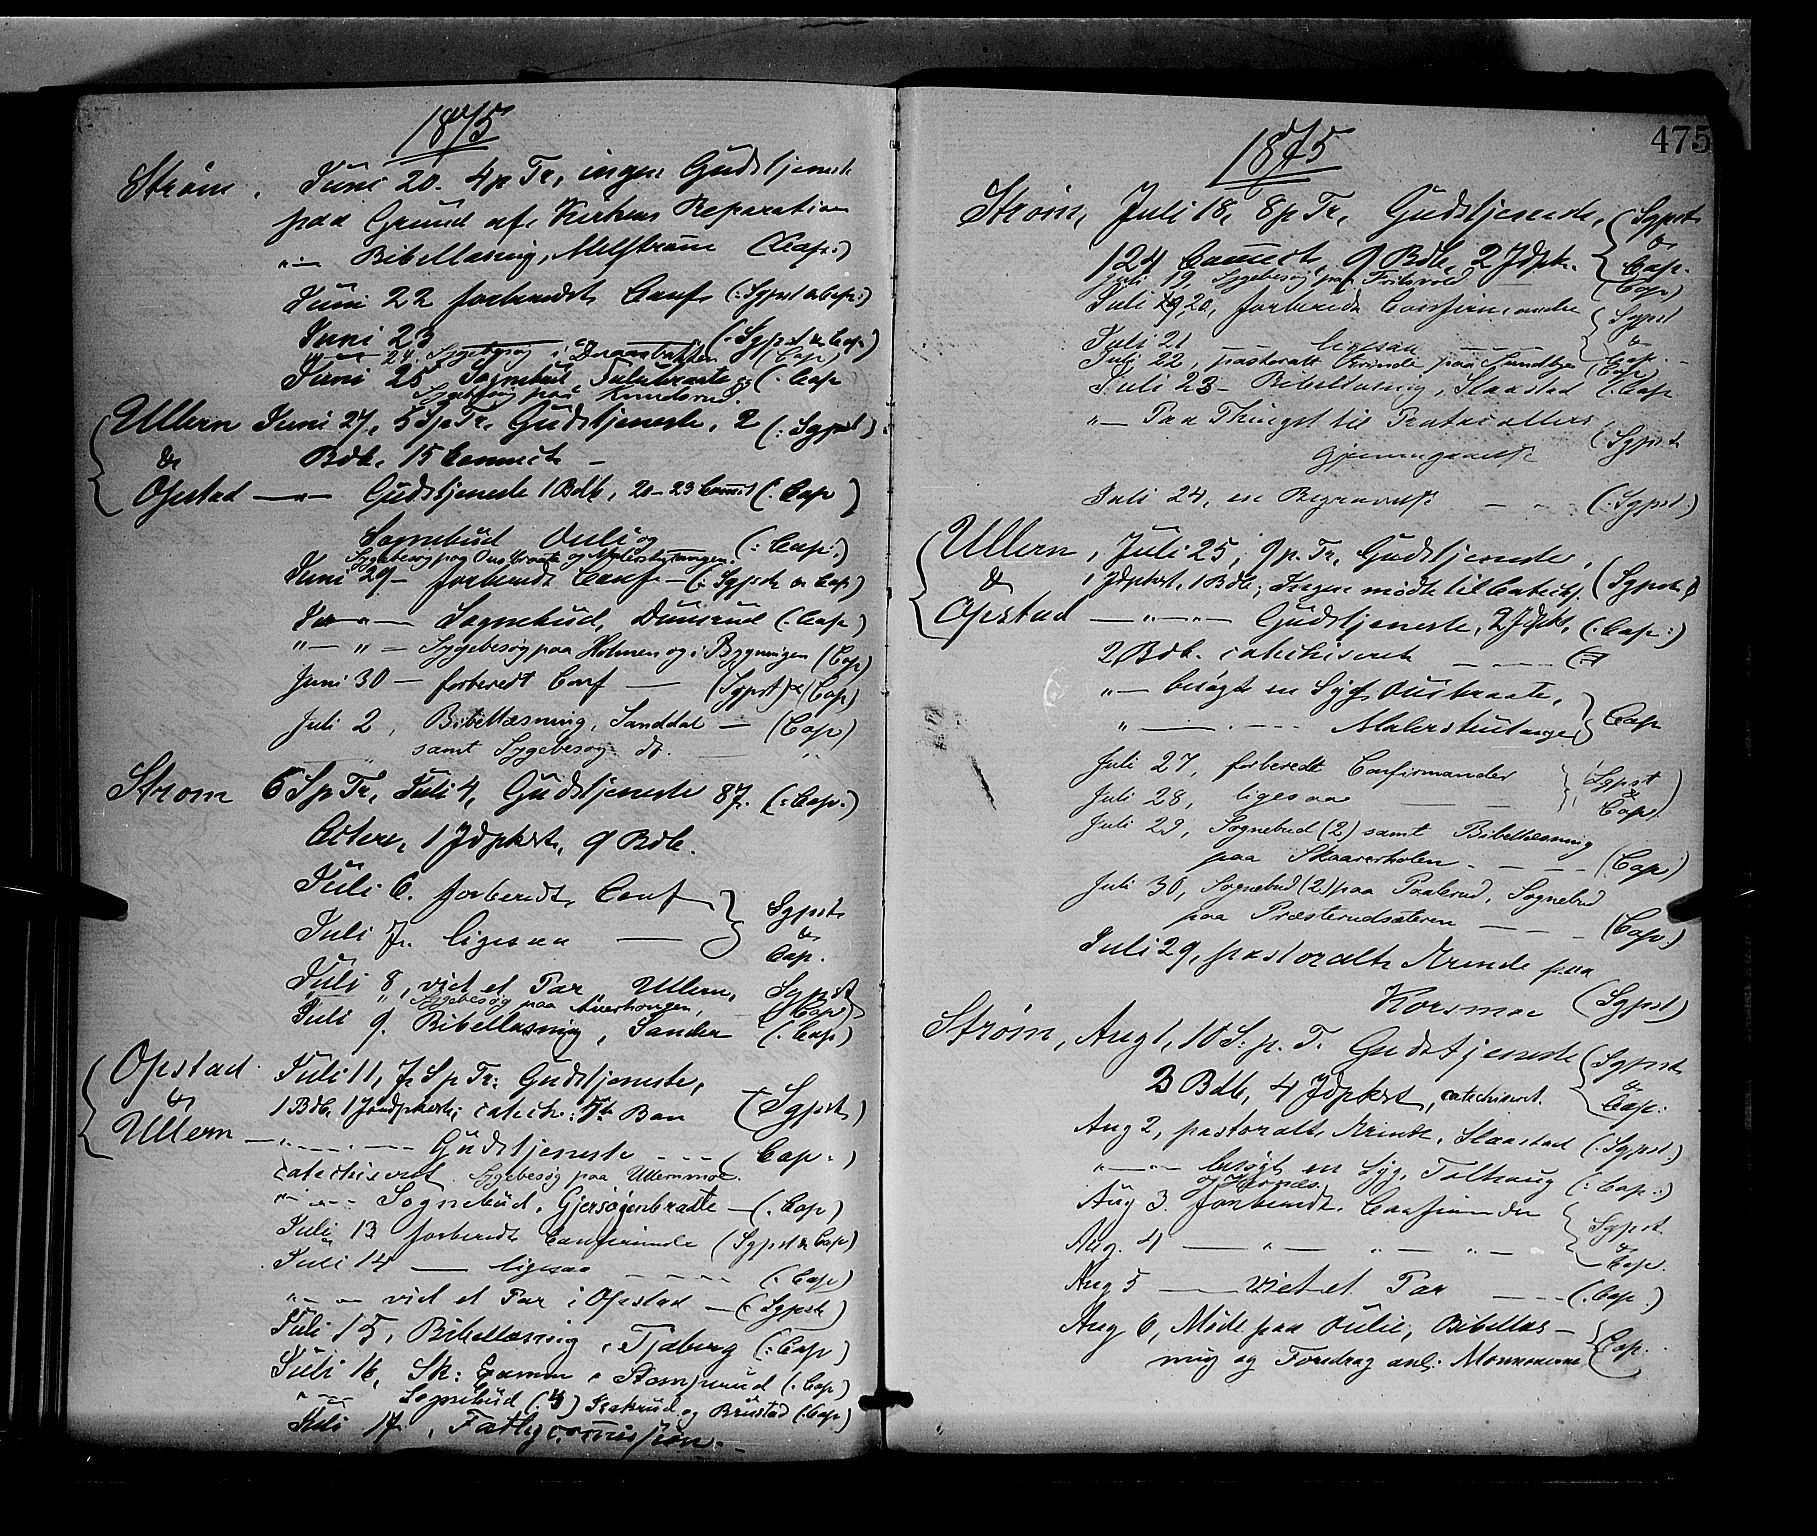 1875
Strøm. Juni 20. 4 p Tr, ingen Gudstjeneste
paa Grund af Kirkens Reparation
"— Bibellæsning, Melstrøm (Cap:)
Juni 22 forberedt Conf. (: Sgpst & Cap:)
Juni 23 — " — (: Sgpst & Cap:)
— 24, Sygebesøg i (Cap)
Juni 25 Sognebud, og (: Cap
Sygebesøg paa Knudsrud.
Ullern Juni 27, 5 S p Tr. Gudstjeneste, 2 (: Sgpst)
& Bdb. 15 Comect. —
Opstad —"— Gudstjeneste 1 Bdb, 20-23 Comct (: Cap)
Sognebud Oulie og (: Cap:)
Sygebesøg paa Ousbraate og Malerstutangen
Juni 29 — forberedt Conf — (: Sgpst & Cap)
Ju — " — Sognebud, Duserud (: Cap)
"— " — Sygebesøg paa Holmen og i Bygningen (Cap)
Juni 30 — forberedt Conf — (Sgpst) & (Cap)
Juli 2, Bibellæsning, Sanddal — (Cap)
samt Sygebesøg. d.
Strøm 6 S p Tr, Juli 4, Gudstjeneste 87. (: Cap:)
1 Jdpkst, 9 Bdb.
Juli 6. forberedt Conf } Sgpst
Juli 7. ligesaa — & Cap.
Juli 8, vied et Par, Ullern, Sgpst
" Sygebesøg paa (Cap)
Juli 9. Bibellæsning, Sander (: Cap)
Opstad Juli 11, 7 S p Tr: Gudstjeneste,
& 1 Bdb. 1 Jordpkst; catech: (Sgpst)
Ullern —"— · — Gudstjeneste — — — (Cap:)
catechiseret. Sygebesøg paa Ullernmoe.
"— — Sognebud, Gjersøgenbraate — (: Cap)
Juli 13 forberedt Confirmande (Sgpst & Cap)
Juli 14 — ligesaa — — — — (: Cap)
"— — vied et Par i Opstad — (: Sgpst)
Juli 15, Bibellæsning, Tjaberg (: Cap)
Juli 16, Sk: Examen i Stomperud (: Cap)
" — Sognebud (: 4) og Brustad (: Cap)
Juli 17, Fattigcomission. —
475
1875
Strøm, Juli 18, 8 p Tr, Gudstjeneste, (Sgpst
124 Comect, 9 Bdb, 2 Jdpk. & Cap.
Juli 19, Sygebesøg paa Fritsvold (Cap)
Juli 20, forberedt Confirmander (Sgpst
Juli 21 ligesaa — — &
Juli 22, pastoralt Ærinde paa Sundbye (Cap)
Juli 23 — Bibellæsning, Slaastad (: Cap
"— Paa Thinget til Protocollers
Gjennemgaaelse (: Sgpst
Juli 24, en Begravelse — — (: Sgpst:)
Ullern, Juli 25, 9 p. Tr, Gudstjeneste,
& 1 Jdpkst, 1 Bdb; Ingen mødte til Catech. (Sgpst)
Opstad — " — " — Gudstjeneste, 2 Jdpkst, (: Cap:)
2 Bdb. catechiseret — — — —
"— besøgt en Syg, Ousbraate,
" — · — — Malerstutangen } Cap
Juli 27, forberedt Confirmander } (Sgpst
Juli 28, ligesaa — — & Cap)
Juli 29, Sognebud (2) samt Bibellæsning
paa Skaarerholen — — — (Cap)
Juli 30, Sognebud (2) paa Paalerud, Sognebud
paa Præsterudsæteren — — — (Cap.)
Juli 29, pastoralt Ærinde paa
Korsmoe (Sgpst)
Strøm, Aug 1, 10 S. p. T. Gudstjeneste (Sgpst
3 Bdb, 4 Jdpkst, catechiseret. & Cap:
Aug 2, pastoralt Ærinde, Slaastad (: Sgpst)
"— — besøgt en Syg, Tolhaug (: Cap:)
og Hernæs.
Aug 3. forberedt Confirmander (Sgpst.
Aug. 4 — " — " — " — & Cap.
Aug 5 — viet et Par — — (: Cap.)
Aug 6, Møde paa Oulie, Bibellæs-
ning og Foredrag anl: Mormonerne (Cap.